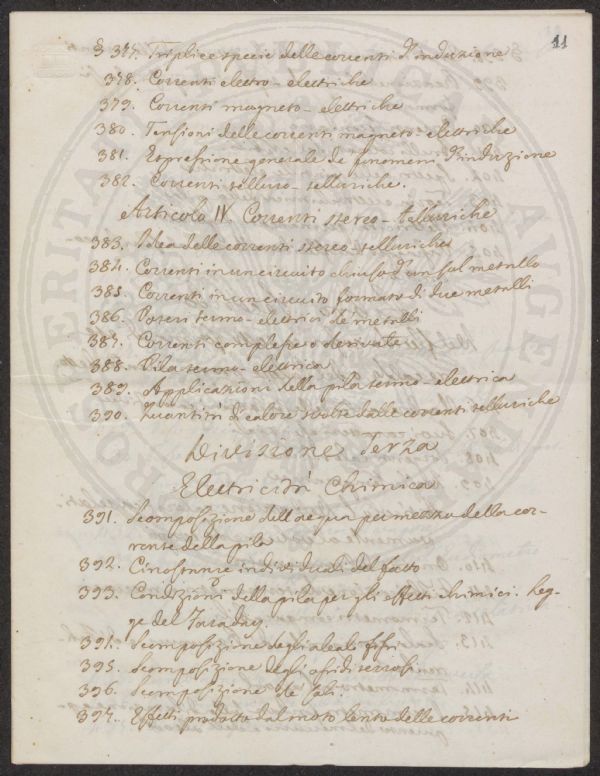 11
§ 377. Triplice specie delle correnti d'induzione
378. Correnti elettro-elettriche
379. Correnti magneto-elettriche
380. Tensioni delle correnti magneto-elettriche
381. Espressione generale de' fenomeni d'induzione
382. Correnti telluro-telluriche.
Articolo IV. Correnti stereo-telluriche
383. Idea delle correnti stereo-telluriche
384. Correnti in un circuito chiuso d'un sol metallo
385. Correnti in un circuito formato di due metalli
386. Poteri termo-elettrici de' metalli
387. Correnti complesse o derivate
388. Pila termo-elettrica
389. Applicazioni della pila termo-elettrica
390. Quantità di calore svolte dalle correnti telluriche
Divisione Terza
Elettricità Chimica
391. Scomposizione dell'acqua per mezzo della cor-
rente della pila
392. Circostanze individuali del fatto
393. Condizioni della pila per gli effetti chimici. Leg-
ge del Faraday.
394. Scomposizione degli alcali fissi
395. Scomposizione degli
396. Scomposizione de' sali
397. Effetti prodotti dal moto lento delle correnti
PROSPERITATI AUGENDAE